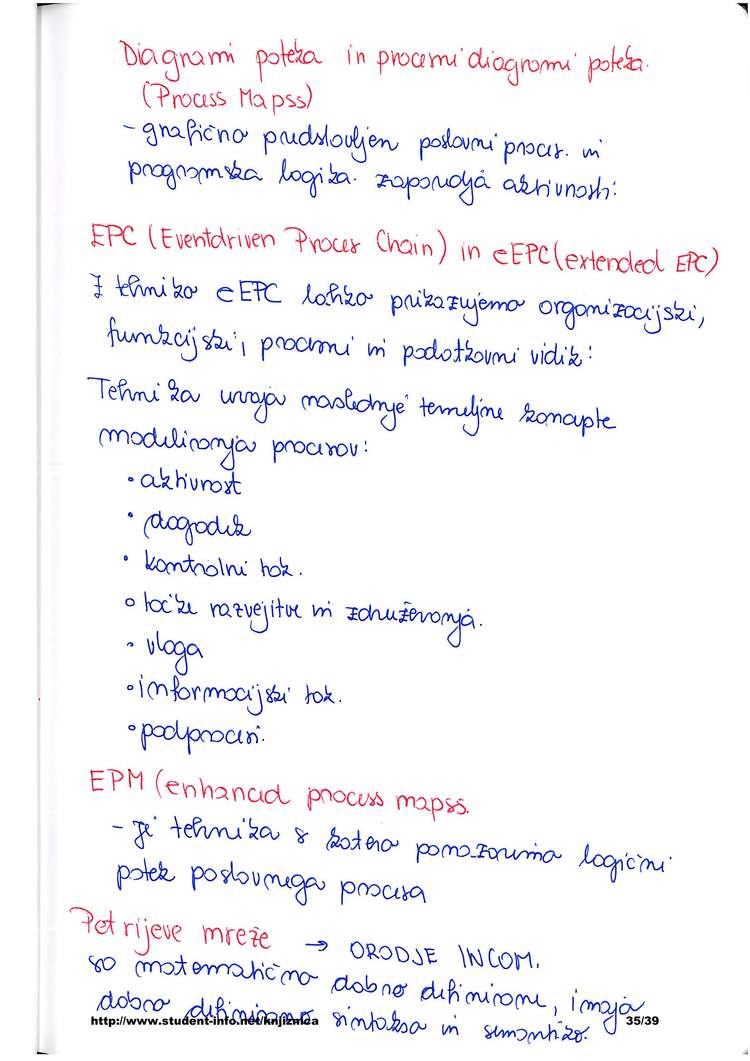 Diagrami poteka in procesni diagrami poteka.
(Process Mapss)
- grafično predstavljen poslovni proces in
programska logika. zaporedja aktivnosti.
EPC (Eventdriven Proces Chain) in eEPC (extended EPC)
Z tehniko eEPC lahko prikazujemo organizacijski,
funkcijski, procesni in podatkovni vidik.
Tehnika uvaja naslednje temeljne koncepte
modeliranja procesov:
• aktivnost
• dogodek
• kontrolni tok.
• točke razvejitve in združevanja.
• vloga
• informacijski tok.
• podprocesi.
EPM (enhanced process mapss.
- je tehnika s katero ponazorimo logični
potek poslovnega procesa
Petrijeve mreže → ORODJE INCOM.
so matematično dobro definirane, imajo
dobro definirano sintakso in semantiko.
http://www.student-info.net/knjiznica 35/39